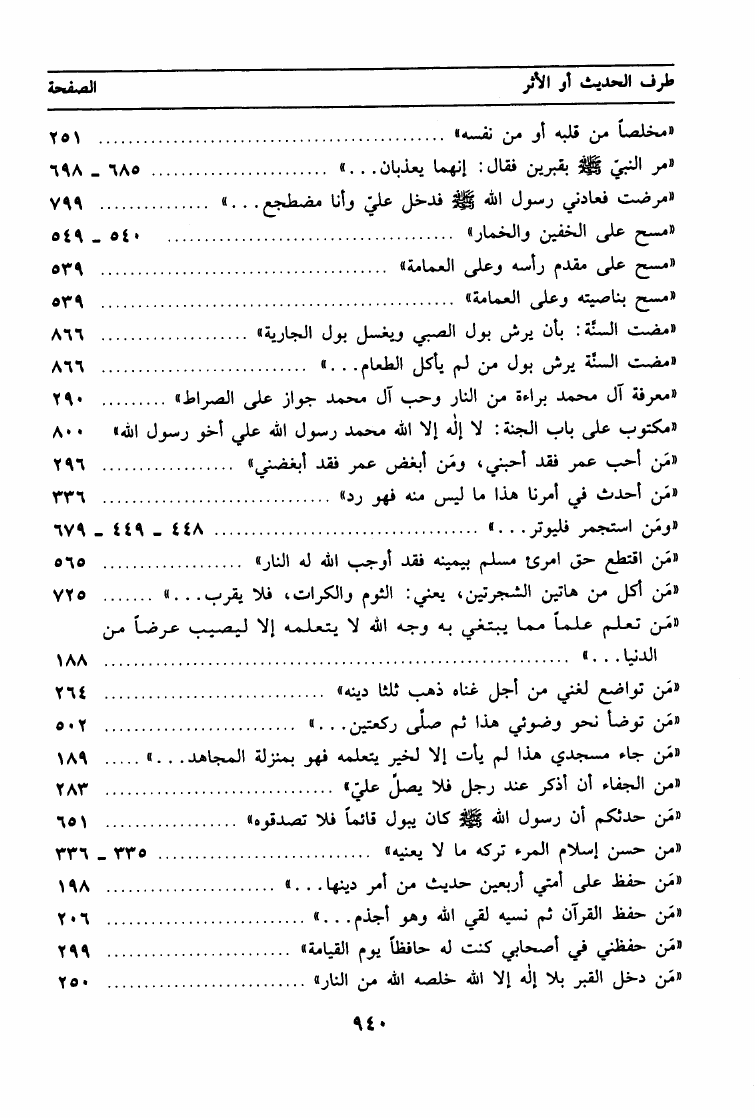 طرف الحديث أو الأثر الصفحة
«مخلصاً من قلبه أو من نفسه» ........ ٢٥١
«مر النبيّ ﷺ بقبرين فقال: إنهما يعذبان...» ........ ٦٨٥ ـ ٦٩٨
«مرضت فعادني رسول الله ﷺ فدخل عليّ وأنا مضطجع...» ........ ٧٩٩
«مسح على الخفين والخمار» ........ ٥٤٠ ـ ٥٤٩
«مسح على مقدم رأسه وعلى العمامة» ........ ٥٣٩
«مسح بناصيته وعلى العمامة» ........ ٥٣٩
«مضت السنَّة: بأن يرش بول الصبي ويغسل بول الجارية» ........ ٨٦٦
«مضت السنَّة يرش بول من لم يأكل الطعام...» ........ ٨٦٦
«معرفة آل محمد براءة من النار وحب آل محمد جواز على الصراط» ........ ٢٩٠
«مكتوب على باب الجنة: لا إلٰه إلا الله محمد رسول الله علي أخو رسول الله» ٨٠٠
«مَن أحب عمر فقد أحبني، ومَن أبغض عمر فقد أبغضني» ........ ٢٩٦
«مَن أحدث في أمرنا هذا ما ليس منه فهو رد» ........ ٣٣٦
«ومَن استجمر فليوتر...» ........ ٤٤٨ ـ ٤٤٩ ـ ٦٧٩
«مَن اقتطع حق امرئ مسلم بيمينه فقد أوجب الله له النار» ........ ٥٦٥
«مَن أكل من هاتين الشجرتين، يعني: الثوم والكرات، فلا يقرب...» ....... ٧٢٥
«مَن تعلم علماً مما يبتغي به وجه الله لا يتعلمه إلا ليصيب عرضاً من
الدنيا...» ........ ١٨٨
«مَن تواضع لغني من أجل غناه ذهب ثلثا دينه» ........ ٢٦٤
«مَن توضأ نحو وضوئي هذا ثم صلَّى ركعتين...» ........ ٥٠٢
«مَن جاء مسجدي هذا لم يأت إلا لخير يتعلمه فهو بمنزلة المجاهد...» ..... ١٨٩
«من الجفاء أن أذكر عند رجل فلا يصلِّ عليّ» ........ ٢٨٣
«مَن حدثكم أن رسول الله ﷺ كان يبول قائماً فلا تصدقوه» ........ ٦٥١
«من حسن إسلام المرء تركه ما لا يعنيه» ........ ٣٣٥ ـ ٣٣٦
«مَن حفظ على أمتي أربعين حديث من أمر دينها...» ........ ١٩٨
«مَن حفظ القرآن ثم نسيه لقي الله وهو أجذم...» ........ ٢٠٦
«مَن حفظني في أصحابي كنت له حافظاً يوم القيامة» ........ ٢٩٩
«مَن دخل القبر بلا إلٰه إلا الله خلصه الله من النار» ........ ٢٥٠
٩٤٠